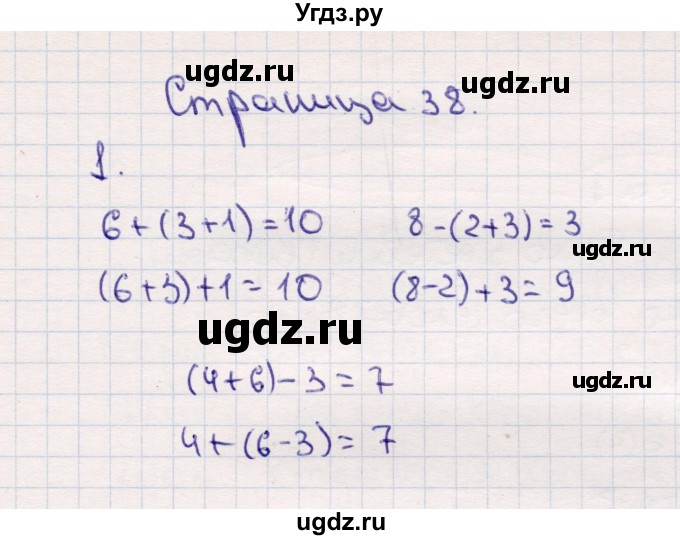 Угдз.ру
ugdz.ru ugdz.ru
Страница 38.
1.
6+(3+1)=10 8-(2+3)=3
ugdz.ru
(6+3)+1=10 (8-2)+3=9
ugdz.ru
(4+6)-3=7
ugdz.ru
4+(6-3)=7
ugdz.ru ugdz.ru